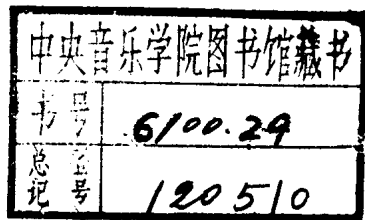 中央音乐学院图书馆藏书
书号 6100.29
总登记号 120510